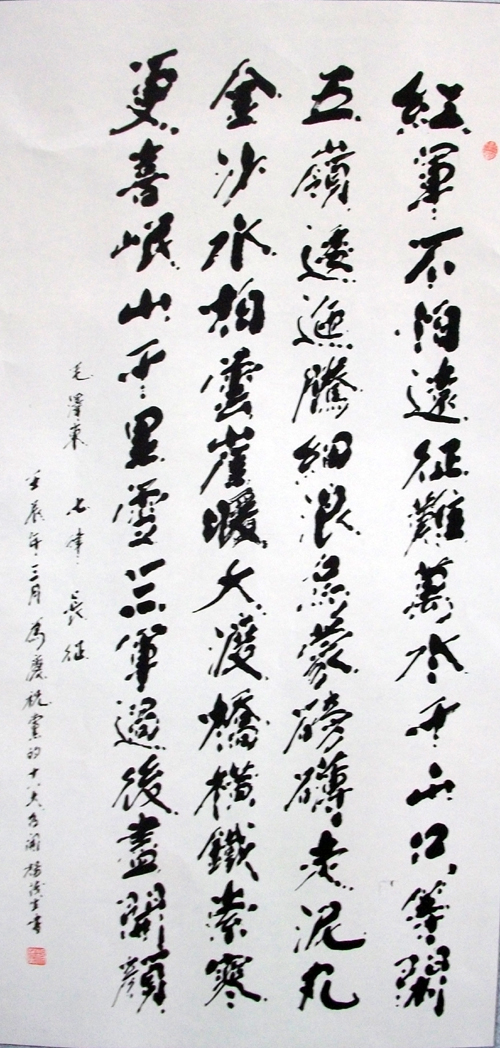 紅軍不怕遠征難萬水千山只等閑
五嶺逶迤騰細浪烏蒙磅礴走泥丸
金沙水拍雲崖暖大渡橋橫鐵索寒
更喜岷山千里雪三軍過後盡開顏
毛澤東 七律 長征
壬辰年三月為慶祝黨的十八大召開 楊 書